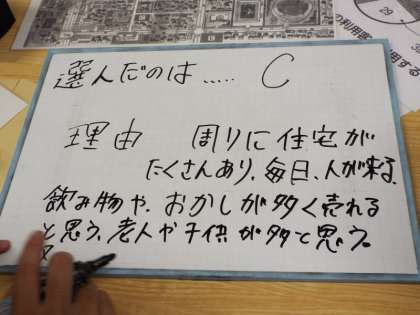 選んだのは..... C
理由 周りに住宅が
たくさんあり、毎日、人が来る。
飲み物や、おかしが多く売れる
と思う、老人や子供が多と思う。
の利用客
用する
29